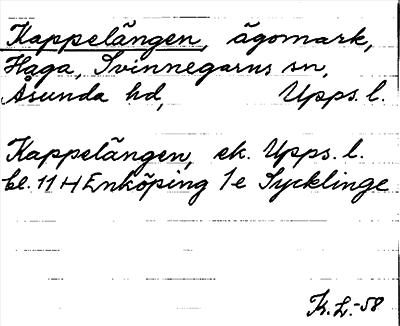 Kappelängen, ägomark,
Haga, Svinnegarns sn,
Åsunda hd, Upps. l.
Kappelängen, ek. Upps. l.
bl. 11 H Enköping 1e Sycklinge
K. L. -58